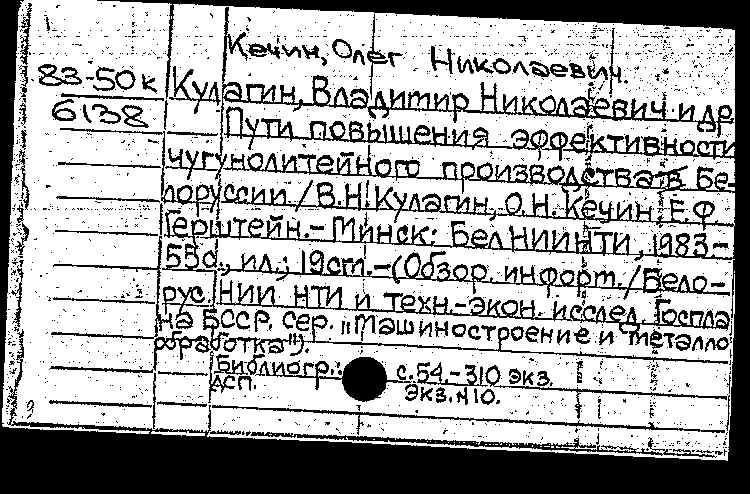 Кечин, Олег Николаевич.
83-50к Кулагин, Владимир Николаевич и др.
6138 Пути повышения эффективности
чугунолитейного производства в Бе-
лоруссии / В.Н. Кулагин, О.Н. Кечин, Е.Ф.
Герштейн.- Минск: БелНИИНТИ, 1983.-
55с., ил.; 19см.-(Обзор. информ./Бело-
рус. НИИ НТИ и техн.-экон. исслед. Госпла
на БССР. Сер. "Машиностроение и металло
обработка").
Библиогр.: с.54.-310 экз.
ДСП. Экз.№10.